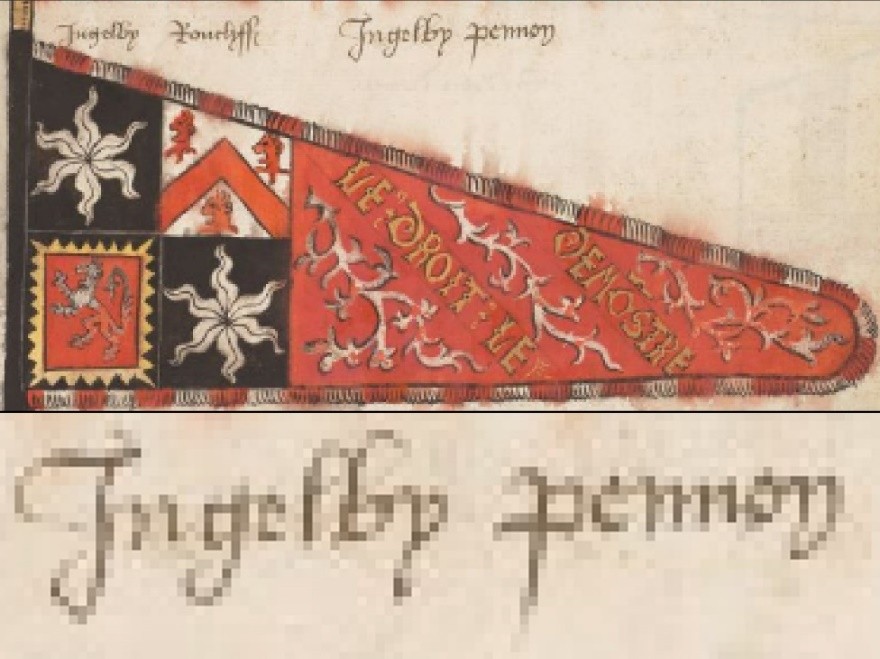 Ingelby Roucliffe Ingelby pennon
LE : DROIT : LE
DENOSTRE
Ingelby pennon